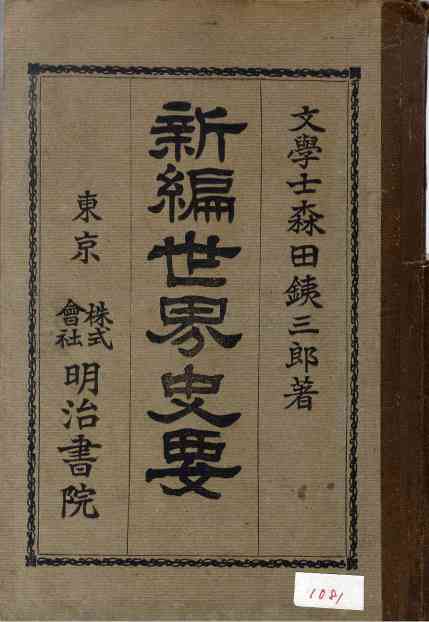 文學士森田銕三郎著
新編世界史要
東京
株式
會社
明治書院
1081